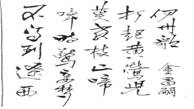 伊州歌 金昌緒
打起黄鶯兒
莫教枝上啼
啼時驚妾夢
不得到遼西